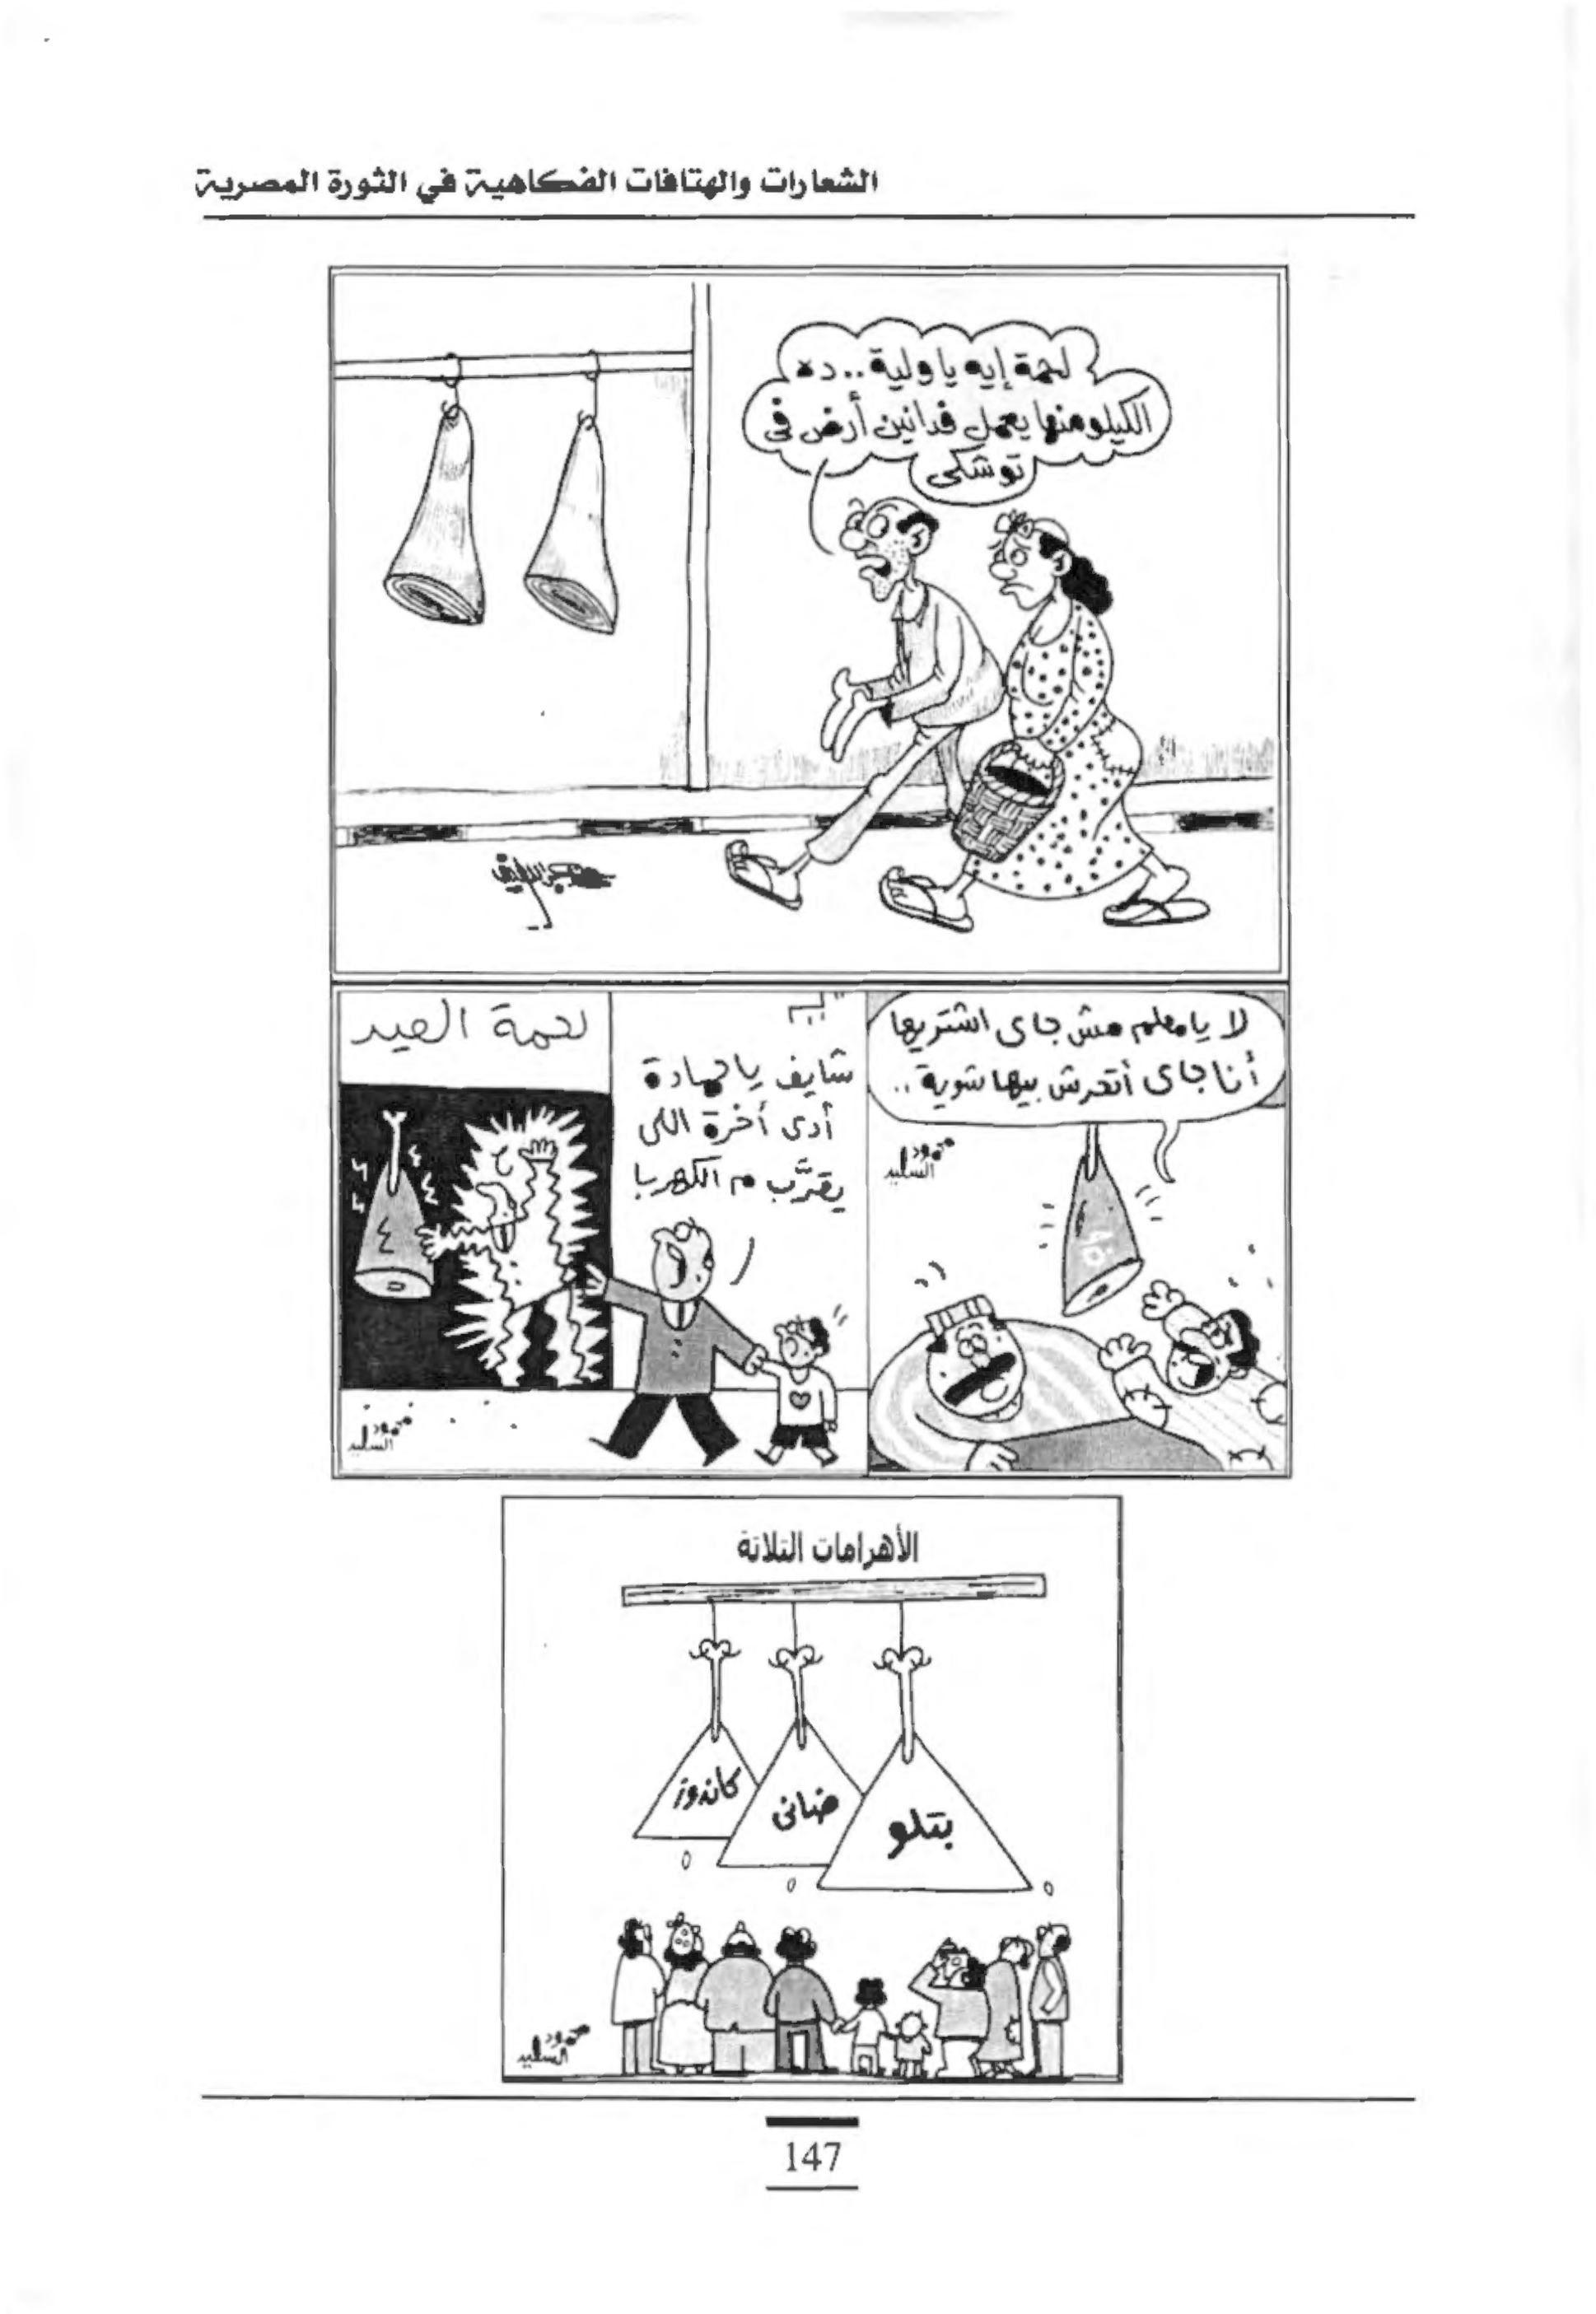 الشعارات والهتافات الفكاهية في الثورة المصرية
لحمة إيه يا ولية.. ده
الكيلو منها يعمل فدانين أرض فى
توشكى
لا يا معلم مش جاى اشتريها
أنا جاى أتحرش بيها شوية..
محمود
السيد
شايف يا حمادة
أدى أخرة اللى
يقرَّب م الكهربا
لحمة العيد
محمود
السيد
الأهرامات التلاتة
كاندوز
ضانى
بتلو
محمود
السيد
147